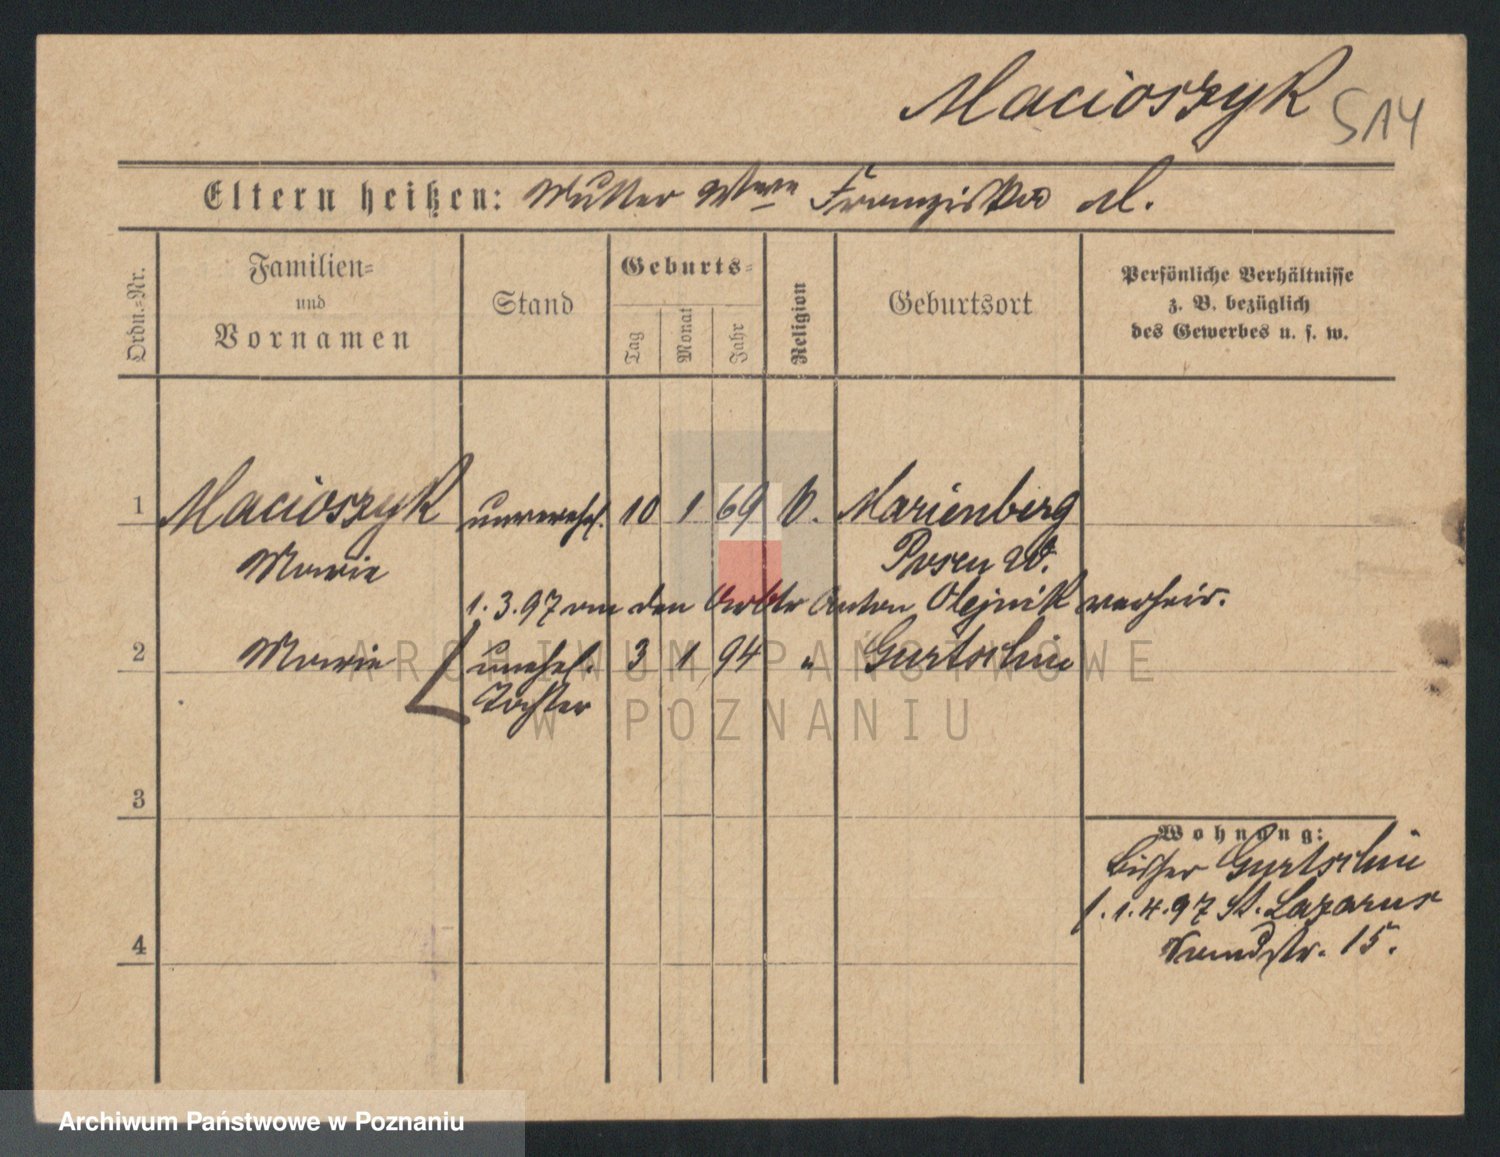 Macioszyk 514
Eltern heißen: Mutter Wwe Franziska M.
Ordn.=Nr.
Familien=
und
Vornamen
Stand
Geburts=
Tag
Monat
Jahr
Religion
Geburtsort
Persönliche Verhältnisse
z. B. bezüglich
des Gewerbes u. s. w.
1 Macioszyk unverehel. 10 1 69 k. Marienberg
Marie Posen W.
1.3.97 an den Arbtr Anton Olejnik verheir.
2 Marie unehel. 3 1 94 " Gurtschin
Tochter
ARCHIWUM PAŃSTWOWE
W POZNANIU
3
Wohnung:
bisher Gurtschin
s. 1.4.97 St. Lazarus
4 15.
Archiwum Państwowe w Poznaniu